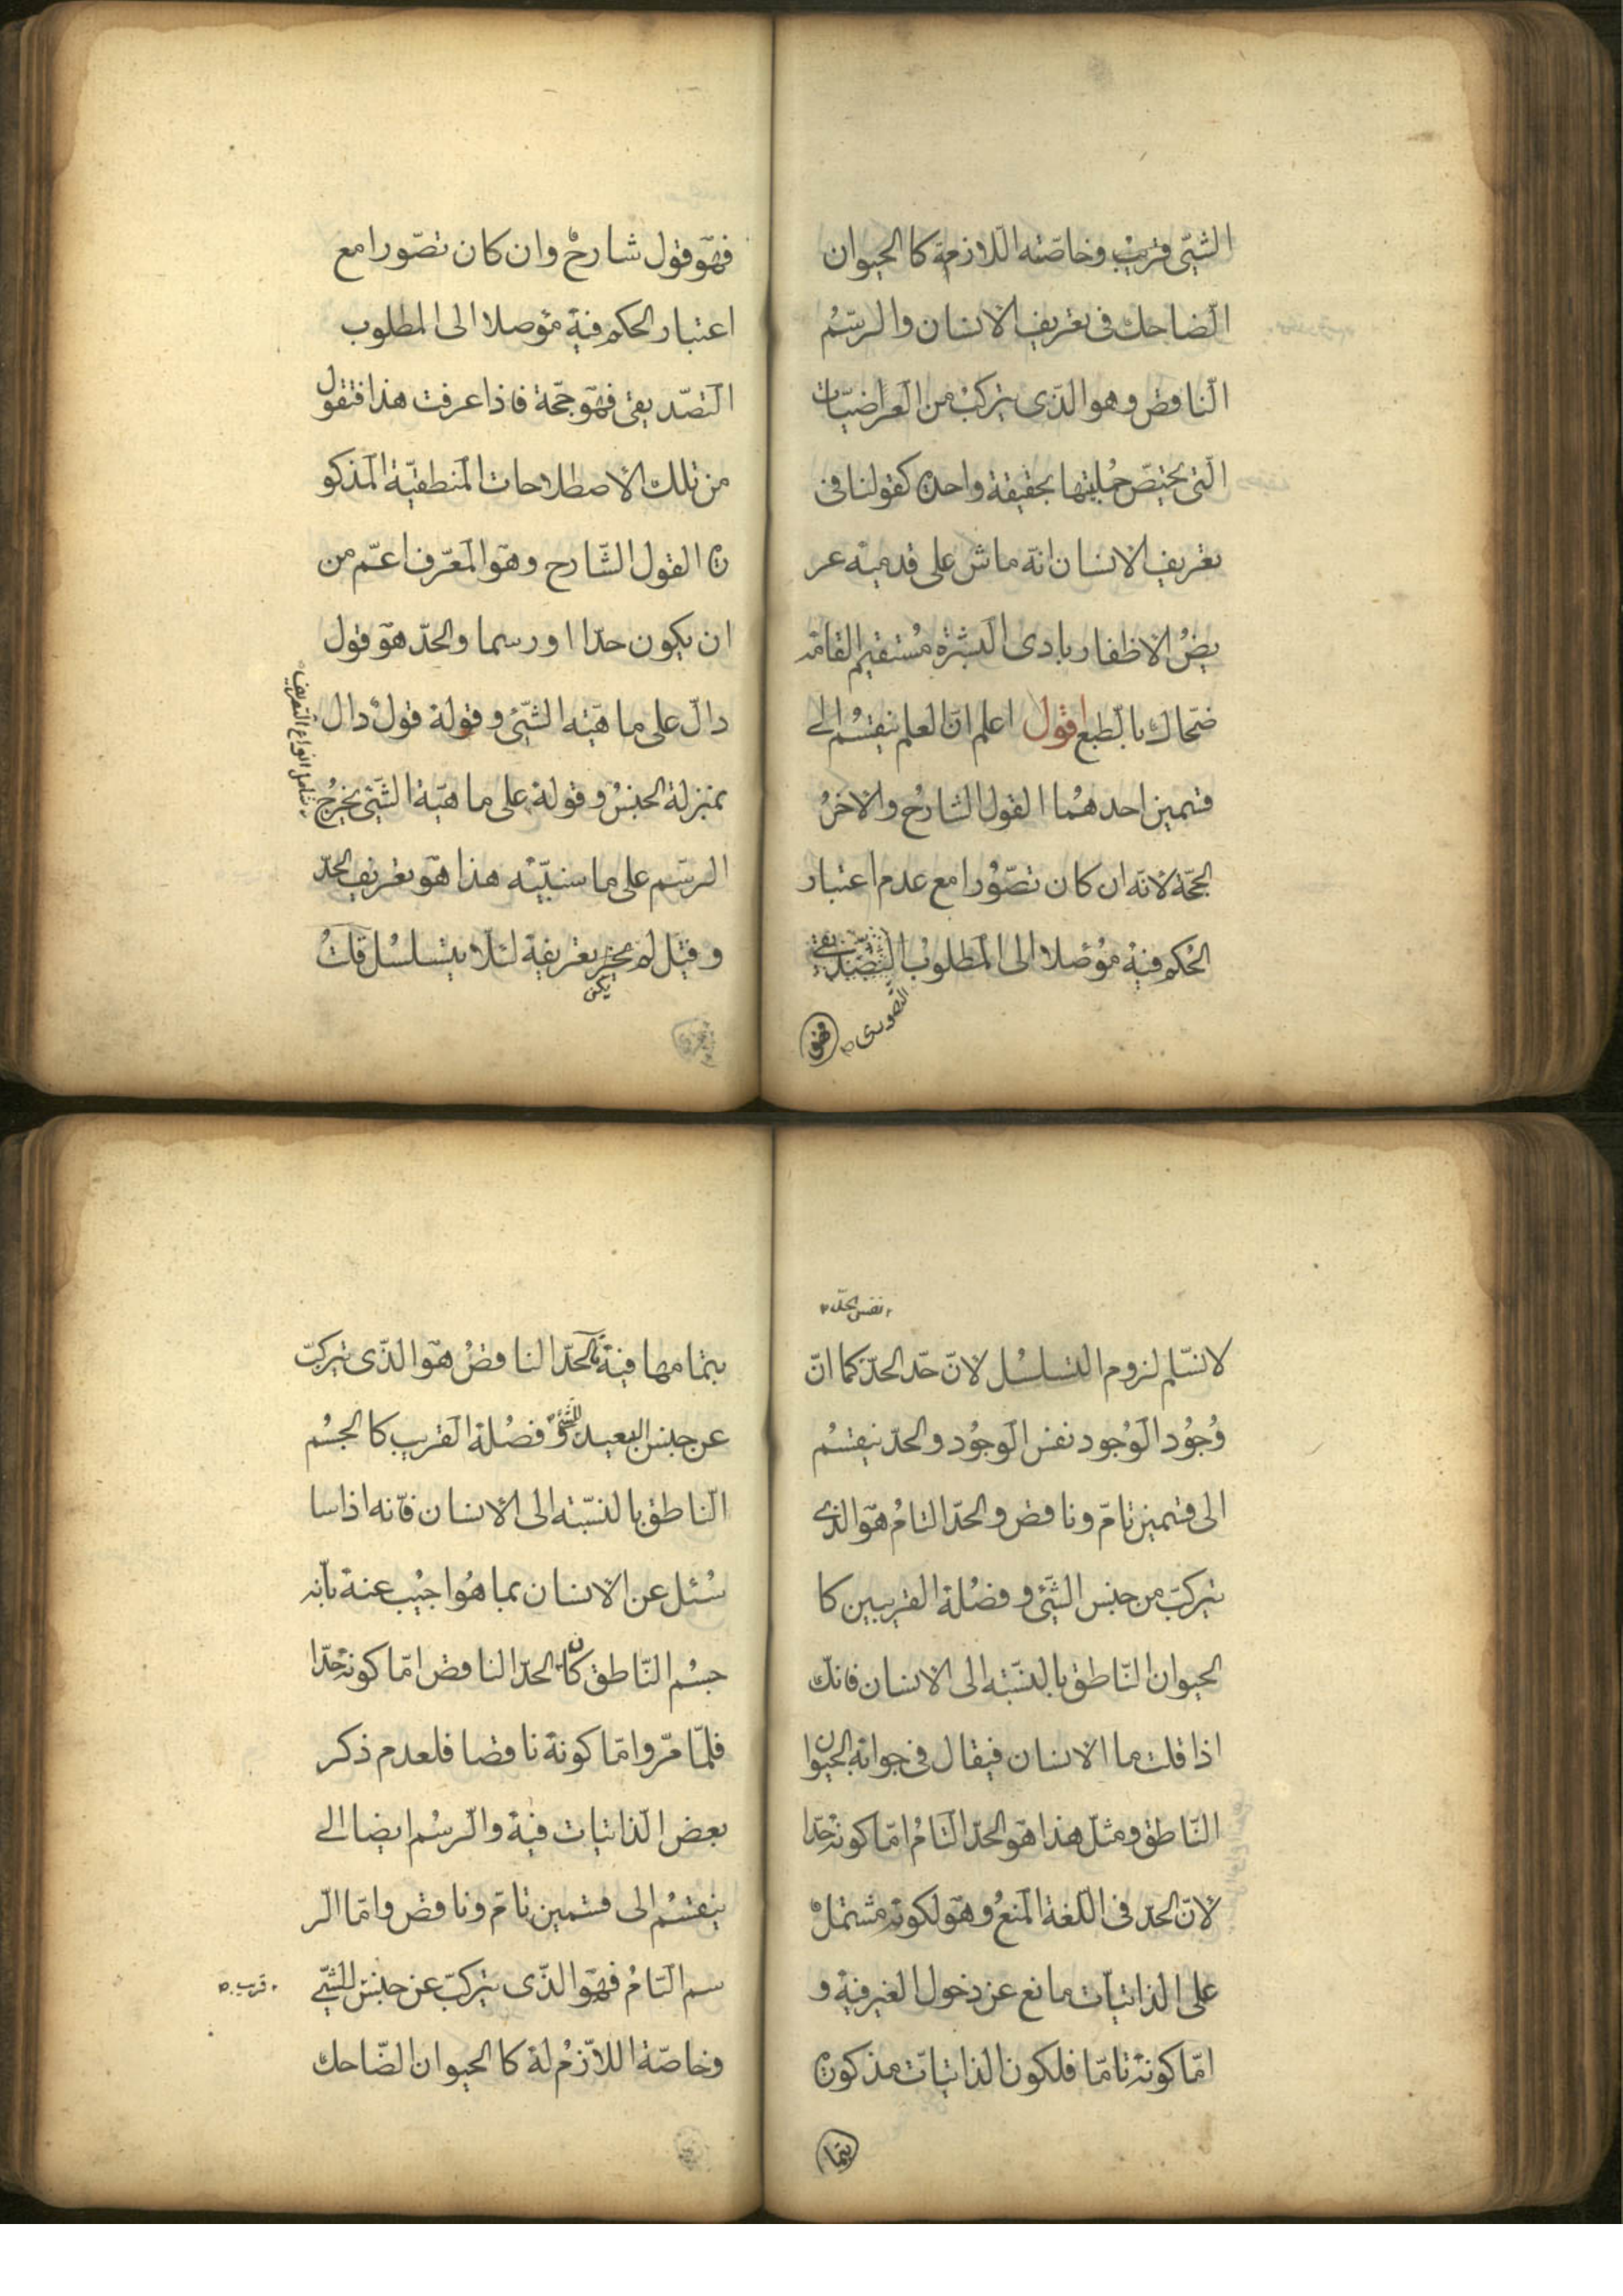 الشيّى قريبْ وخاصّته اللّازمة كا الحيوان
الضّاحك فى تعريف الانسان والرسّمُ
النّاقص وهو الذّى يتركبْ من العراضيّات
الّتى يختصّ جُملتها بحقيقة واحدة كقولنا فى
تعريف الانسان انّه ماش على قدميه عر
يضُ الاظفار بادى البشَرة مُستقيم القامة
ضحّاك بالّطبع اقول اعلم انّ العلم ينقسُم الى
قسمين احدهُما القول الشارحُ والاخرُ
الحجّة لانّه ان كان تصّوُرا مع عدم اعتبار
الحُكم فيه مُوصلا الى المطلوبْ التصّديقى
التّصورى
فهو
فهوّ قول شارحْ وان كان تصّورا مع
اعتبار الحكم فيه مؤصلا الى المطلوب
التصّديقى فهوّ حجّة فاذا عرفت هذا فتقول
من تلك الاصطلاحات المنطقيّة المذكو
رة القول الشّارح وهوّ المعّرف اعمّ من
ان يكون حدّا او رسما والحدّ هوّ قول
دالّ على ماهيّته الشّيئ وقوله قولْ دال
شامل انواع التّعريف
بمنزلة الجنسُ وقوله على ماهيّة الشّيئ يخرجُ
الرسّم على ما سنبيّنه هذا هوّ تعريف الحدّ
وقيل لم يجز تعريفة لئلّا يتسلسُل قلتُ
يكن
نفس الحدّ
لانسّلم لزوم التسلسُل لانّ حّد الحدّ كما انّ
وُجُود الوُجود نفس الوجُود والحدّ ينقسُم
الى قسمين تامّ وناقص والحدّ التامُ هوّ الذى
يتركبّ من جنس الشّيئ وفصُلة القريبين كا
الحيوان النّاطق بالنسّبته الى الانسان فانكّ
اذا قلت ما الانسان فيقال فى جوابه الحيوان
النّاطق ومثلّ هذا هوّ الحدّ التّامُ امّا كونه حدّا
لانّ الحدّ فى اللّغة المنعُ وهوّ لكونه مشتملْ
على الذاتيّات مانع عن دخول الغير فية و
امّا كونه تامّا فلكون الذاتيات مذكورة
بتما
بتمامها فية الحدّ الناقصُ هوّ الذّى يتركبّ
عن جنس البعيد للشّئ و فصُلة القريب كا الجسُم
النّاطق بالنسّبته الى الانسان فانّه اذا سا
سُئل عن الانسان بما هُو اجيُب عنه بانّه
جسُم النّاطق كان الحدّ الناقص امّا كونه حدّا
فلمّا مّر وامّا كونة ناقصا فلعدم ذكر
بعض الذّاتيات فية والّرسُم ايضا الى
ينقسُم الى قسمين تامّ وناقص وامّا الّر
سم التّامُ فهوّ الذّى يتركبّ عن جنس للشّيّئ
قريب
وخاصّة اللازّمُ له كا الحيوان الضّاحك